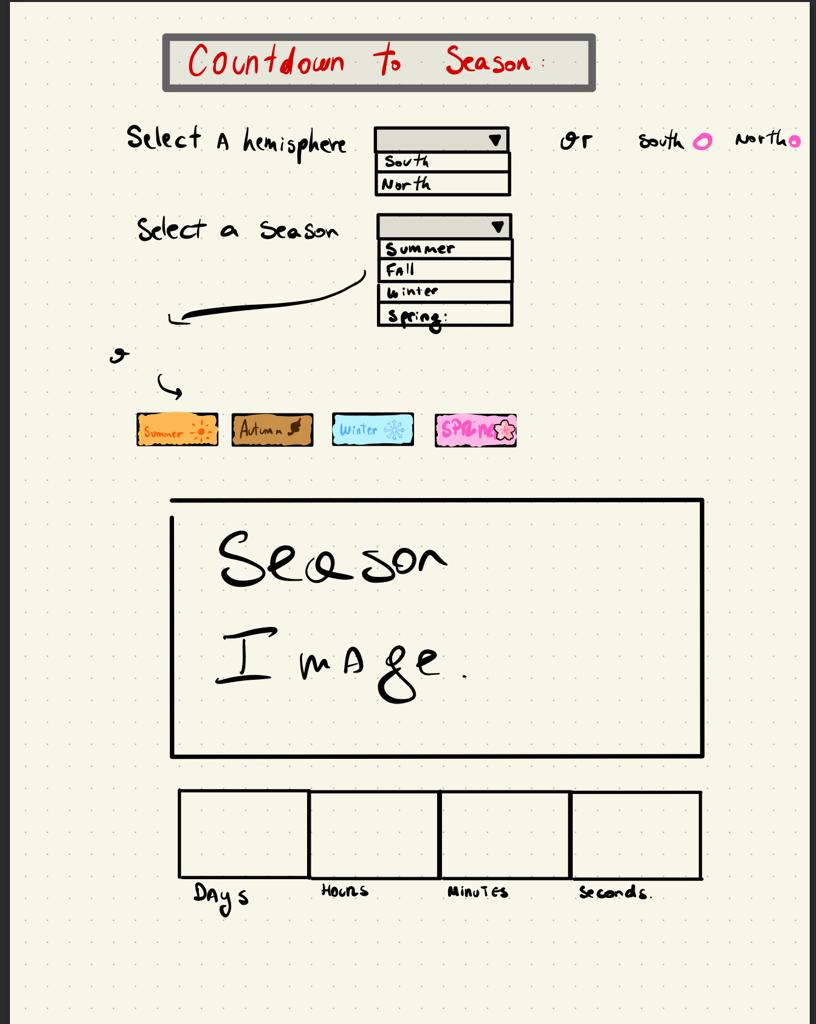 Countdown to Season:
Select A hemisphere
South
North
or South North
Select a Season
Summer
Fall
Winter
Spring:
Summer Autumn Winter SPRING
Season
Image.
Days Hours Minutes Seconds.